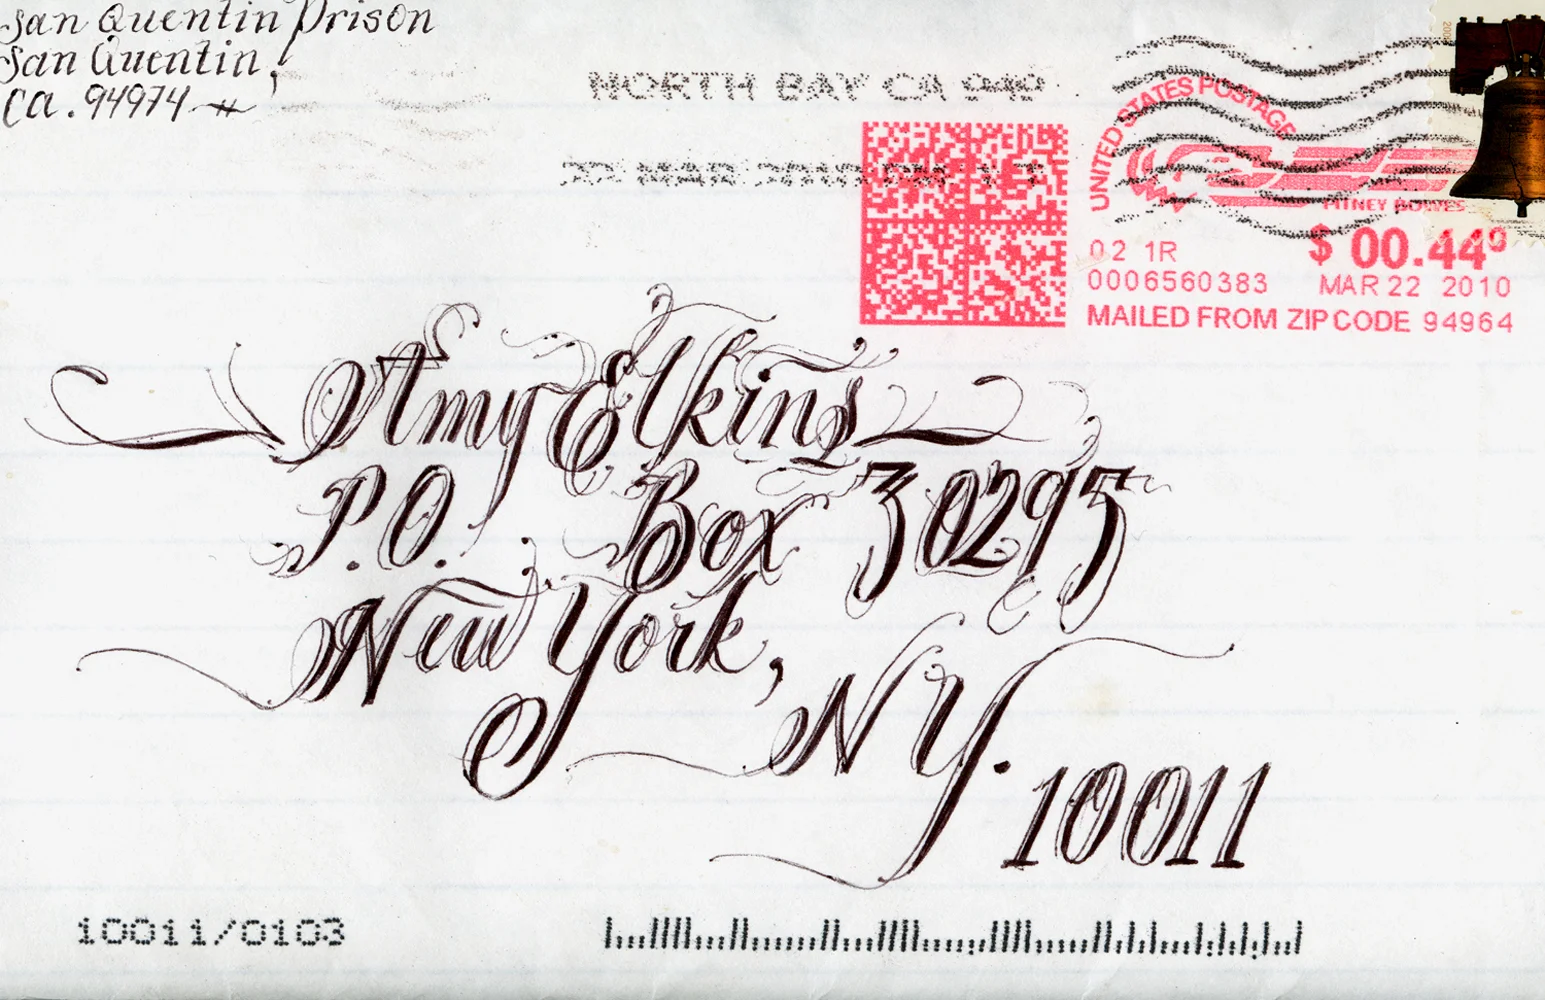 San Quentin Prison
San Quentin,
CA. 94974
NORTH BAY CA 949
22 MAR 2010 PM
UNITED STATES POSTAGE
PITNEY BOWES
02 1R
$ 00.44⁰
0006560383
MAR 22 2010
MAILED FROM ZIP CODE 94964
Amy Elkins
P.O. Box 30295
New York, NY. 10011
10011/0103